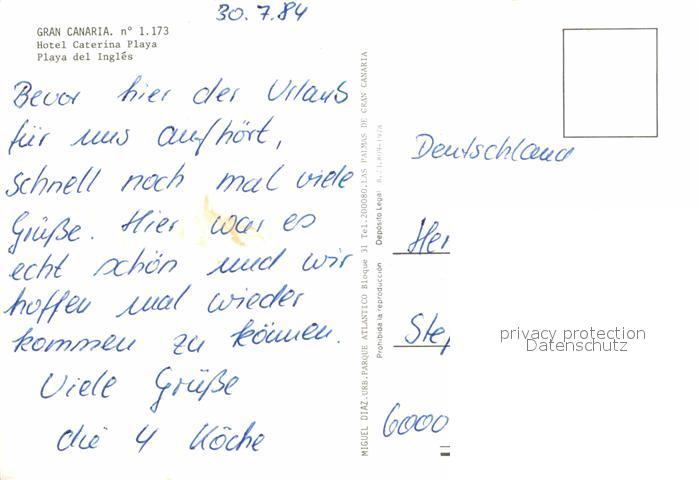 30.7.84
GRAN CANARIA. nº 1.173
Hotel Caterina Playa
Playa del Inglés
Bevor hier der Urlaub
für uns aufhört,
schnell noch mal viele
Grüße. Hier war es
echt schön und wir
hoffen mal wieder
kommen zu können.
Viele Grüße
die 4 Köche
MIGUEL DIAZ.URB.PARQUE ATLANTICO Bloque 31 Tel.200080.LAS PALMAS DE GRAN CANARIA
Prohibida la reproducción
Depósito Legal
Deutschland
Her
Step
6000
privacy protection
Datenschutz